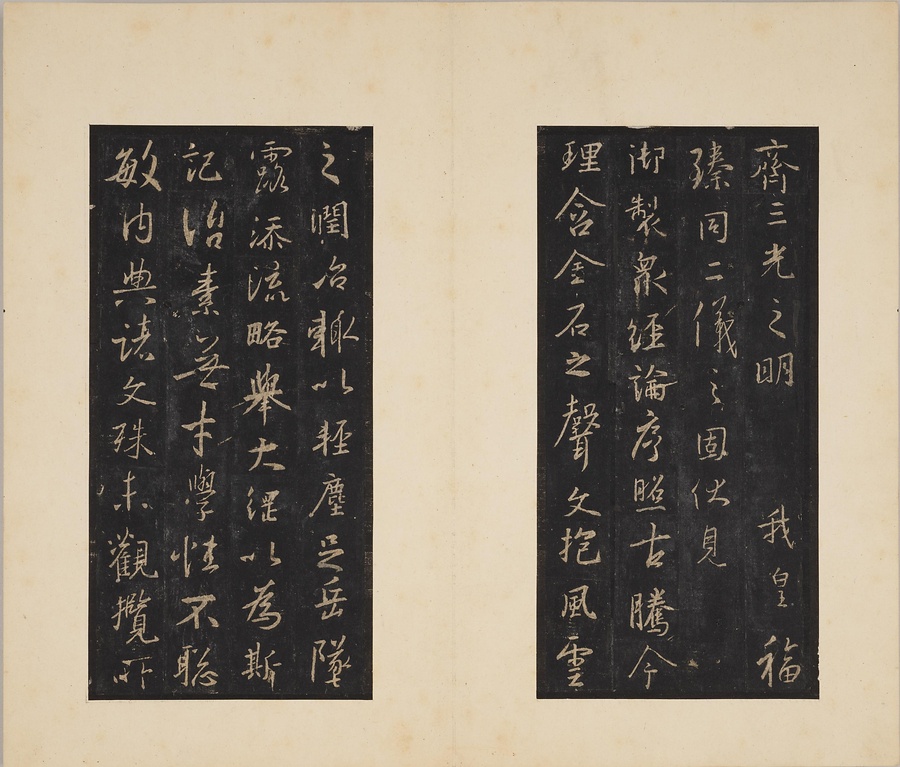 齊三光之明　我皇福
臻同二儀之固伏見
御製衆經論序照古騰今
理含金石之聲文抱風雲
之潤治輒以輕塵足岳墜
露添流略舉大綱以為斯
記治素無才學性不聡
敏內典諸文殊未觀攬所